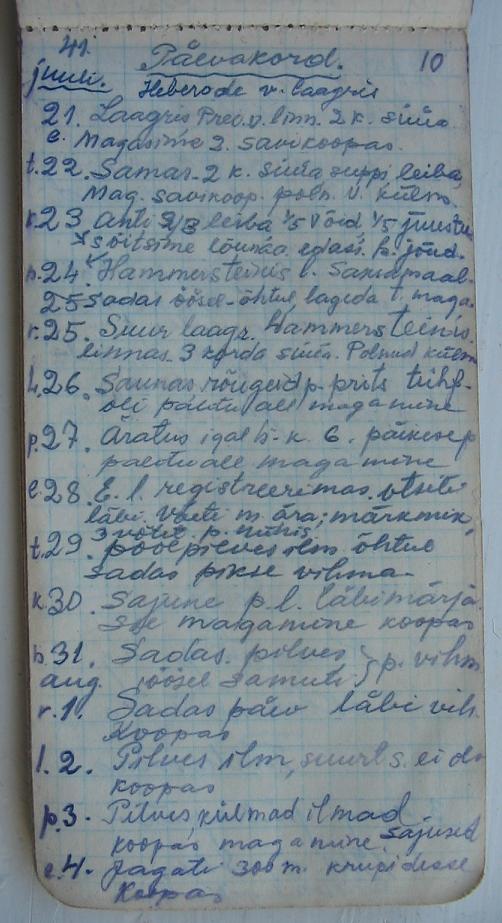 41.
10
Päevakord.
juuli. Heberode v. laagris
21. Laagris Prev. v. linn. 2 k. süüa
e. Magasime 2. savikoopas.
t. 22. Samas. 2 k. süüa suppi leiba,
Mag. savikoop. poln. v. külm
k. 23 Anti 2/3 leiba 1/5 võid 1/5 juustu
sõitsime lõunáa edasi
n. 24. Hammersteinis l. Saksamaal
25 sadas öösel - õhtul lageda t. maga.
r. 25. Suur laagr. Hammersteinis.
linnas. 3 korda süüa. Polnud külm
l. 26. Saunas, rõugeid p. prits
oli palitu all magamine
p. 27. Äratus igal h. k. 6. päikese p
palitu all magamine
e. 28. E. l. registreerimas. otsiti
läbi võeti m. ära; märkmik,
3 võtit
t. 29. poolpilves ilm õhtul
sadas pikse vihma
k. 30. Sajune p. l. läbimärja
magamine koopas
n. 31. Sadas. pilves } p. vihm
aug. öösel samuti
r. 1. Sadas päev läbi vih.
Koopas
l. 2. Pilves ilm, suurt s. ei
koopas
p. 3. Pilves, külmad ilmad
koopas magamine. sajused
e. 4. Jagati 300 m.
Koopas